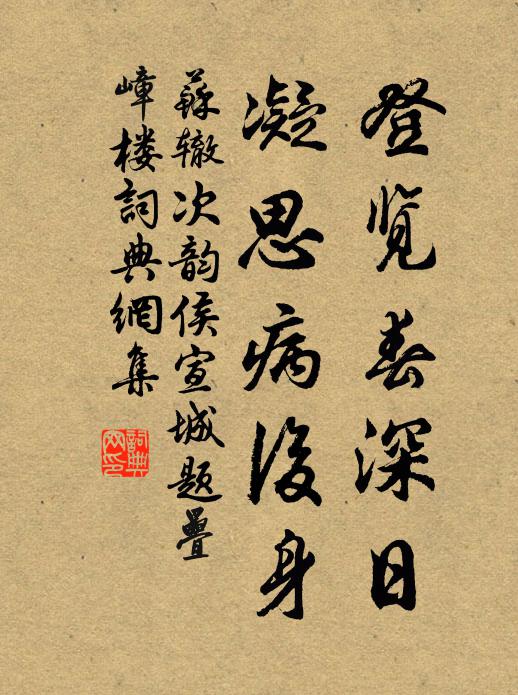 登览春深日
凝思病后身
蘇辙次韵侯宣城題疊
嶂楼詞典網集
詞典
网印